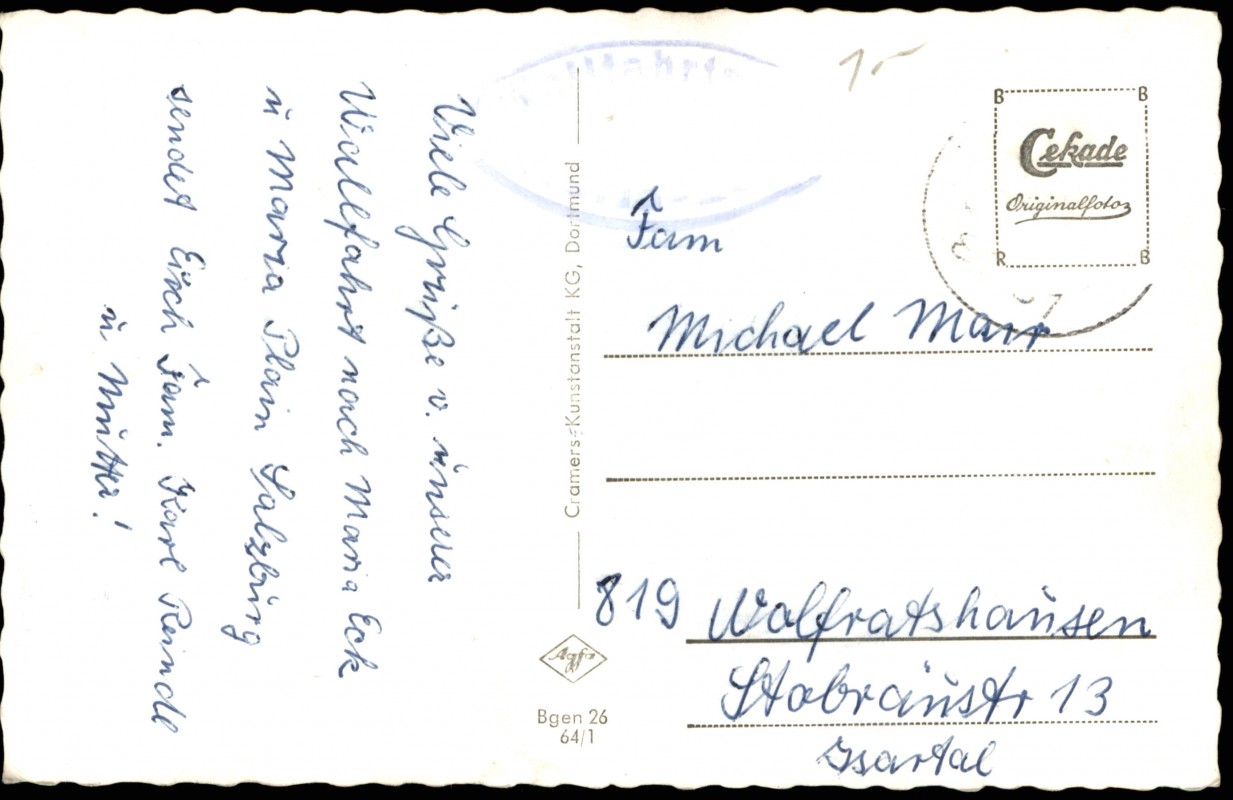 Viele Grüße v. unserer
Wiallfahrt nach Maria Eck
u Maria Plain Salzburg
sendet Euch Fam. Karl Reindl
u Mutter!
Cramers Kunstanstalt KG, Dortmund
Agfa
Bgen 26
64/1
1-
B B
Cekade
Originalfotos
R B
Fam
Michael Mair
819 Wolfratshausen
Stobräustr 13
Isartal